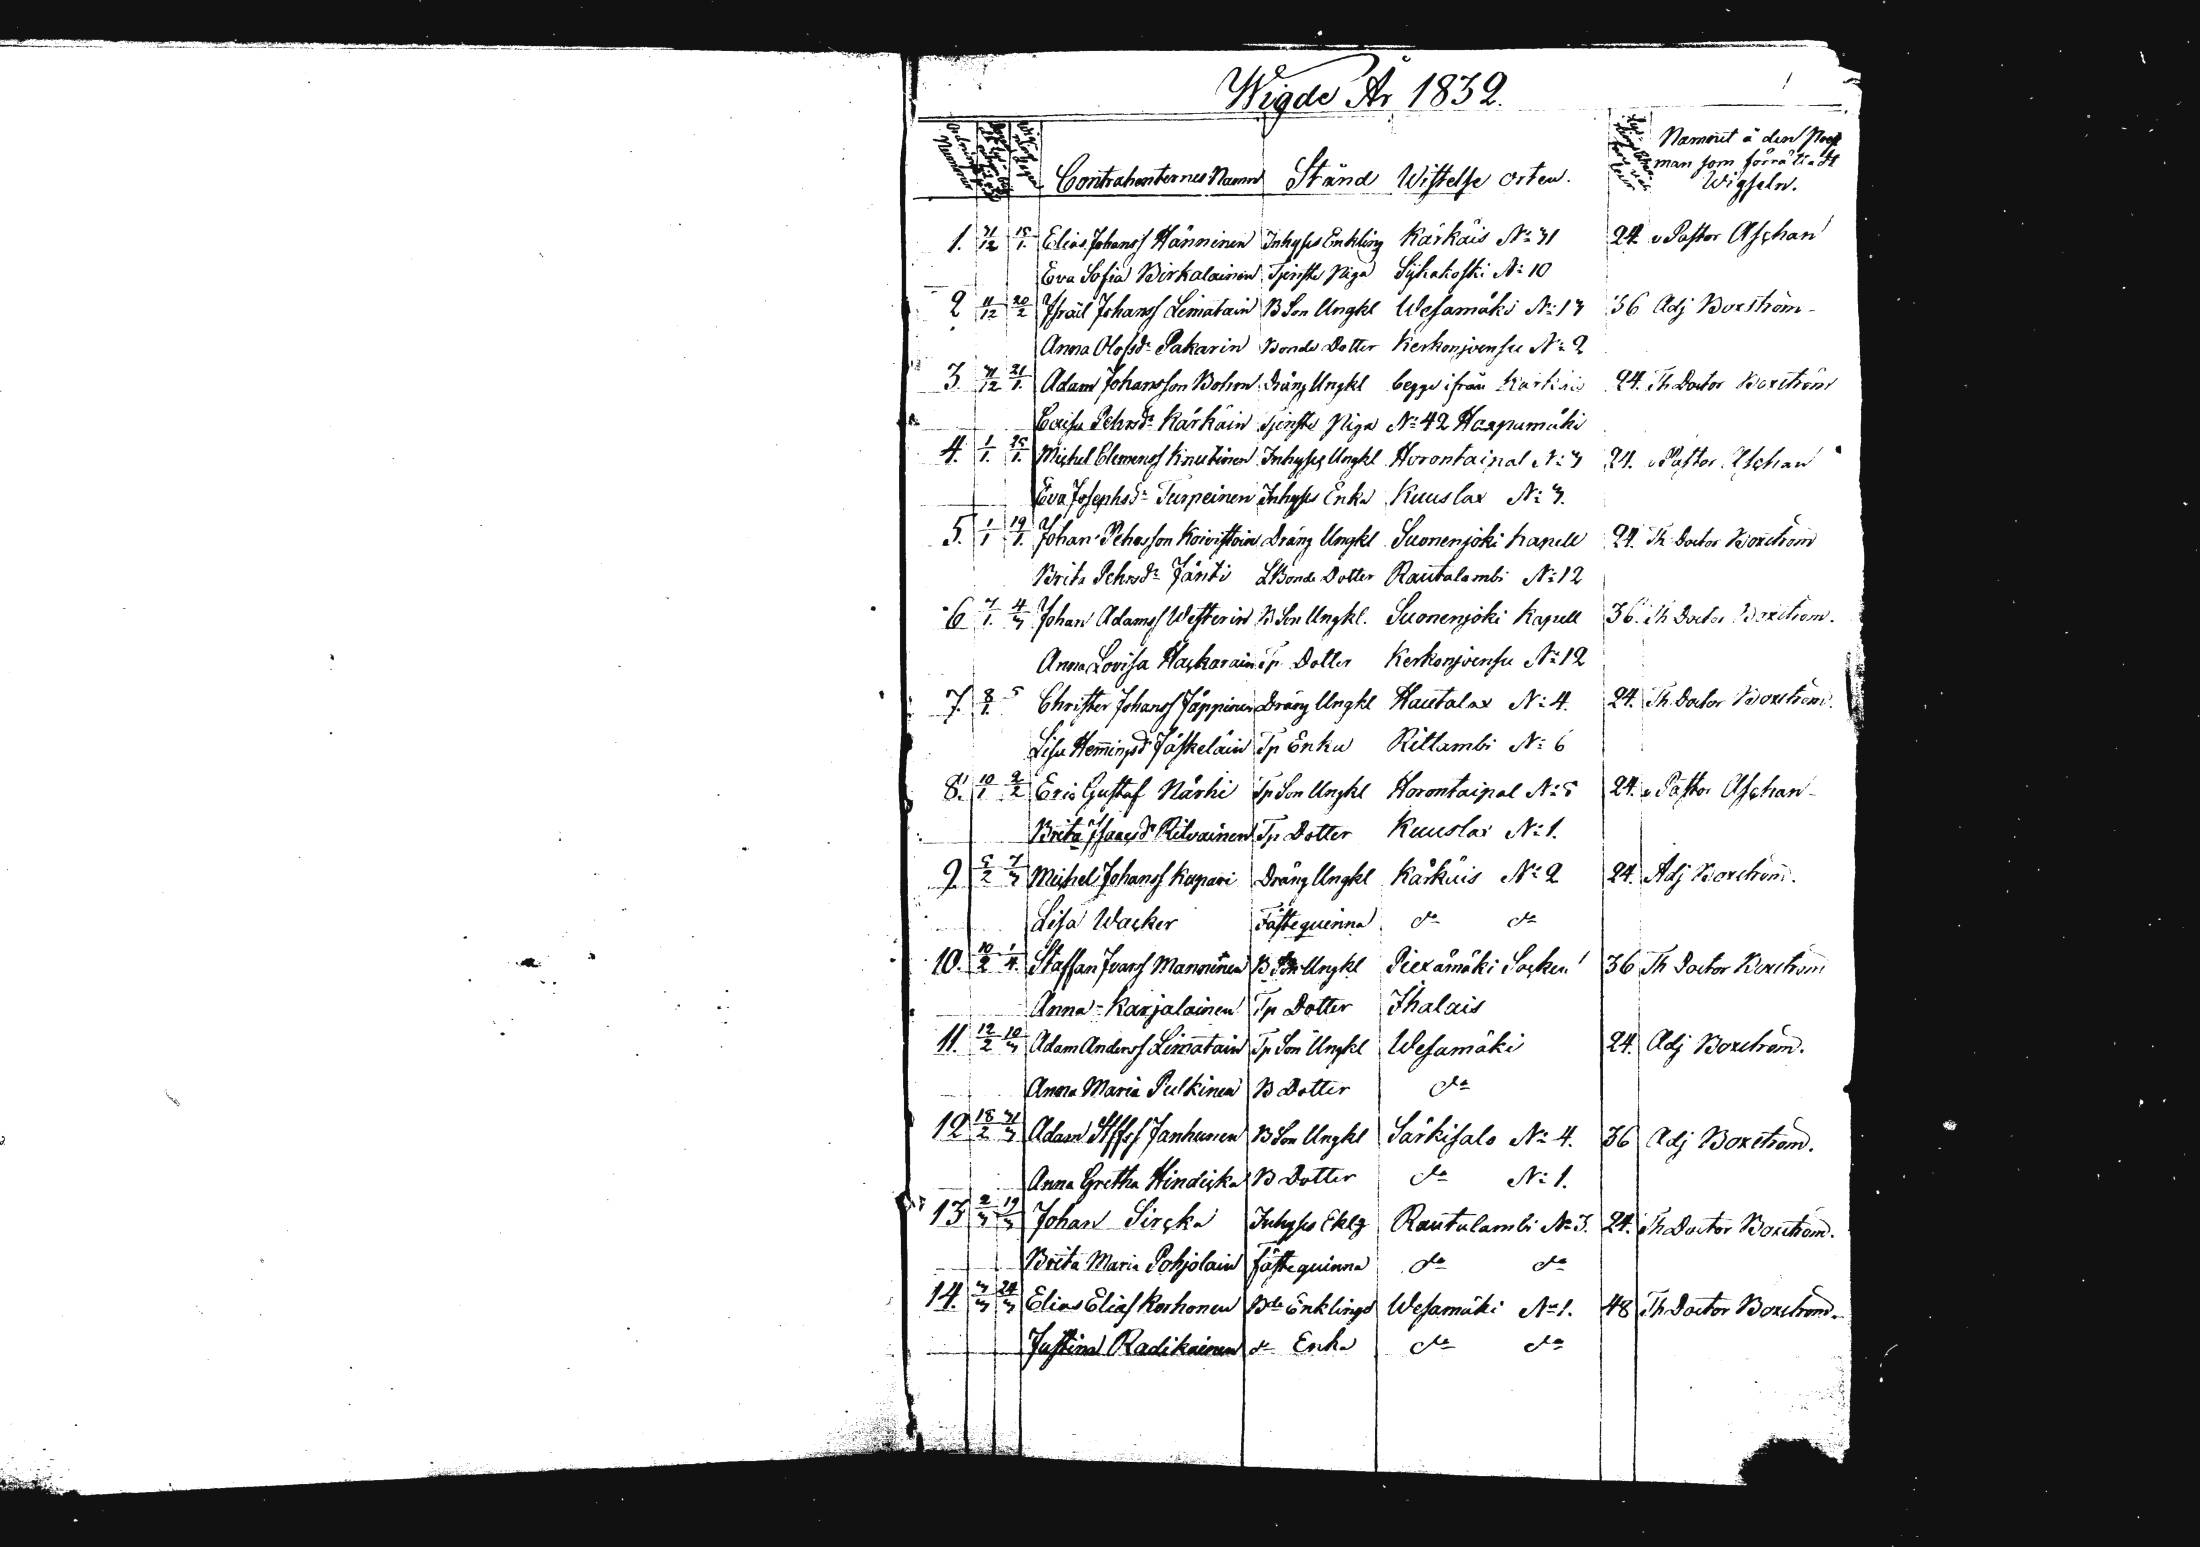 Wigde År 1832.
Contrahenternes Namn Stånd Wistelse orten. Namnet å den Prest
man som förrättadt
Wigseln.
1. 31/12 15/1. Elias Johanss Hänninen Inhyses Enkling Kärkäis No 31 24 v Pastor Aschan
Eva Sofia Birkalainen Tjenste Piga Syhakoski No 10
2 11/12 20/2 Israil Johanss Limatain B Son Ungkl Wesamäki No 13 36 Adj Boxström
Anna Olofsdr Pakarin Bonde Dotter Kerkonjoensu No 2
3. 31/12 21/1. Adam Johansson Bohm Dräng Ungkl begge ifrån Kärkäis 24. Th Doctor Boxström
Caisa Pehrsdr Kärkäin Tjenste Piga No 42 Haapumäki
4. 1/1. 25/1. Michel Clemenss Knutinen Inhyses Ungkl Horontaipal No 3 24. v Pastor Aschan
Eva Josephsdr Turpeinen Inhyses Enka Kuuslax No 3.
5. 1/1 19/1. Johan Pehrsson Koivistoin Dräng Ungkl Suonenjoki Kapell 24. Th Doctor Boxström
Brita Pehrsdr Jänti LBonde Dotter Rautalambi No 12
6 7/1. 4/3 Johan Adamss Westerin B Son Ungkl. Suonenjoki Kapell 36. Th Doctor Boxström.
Anna Lovisa Hackarain Tp Dotter Kerkonjoensu No 12
7. 8/1. 5 Christer Johanss Jäppinen Dräng Ungkl Hautalax No 4. 24. Th Doctor Boxström.
Lisa Hemingsdr Jäskeläin Tp Enka Kitlambi No 6
8. 10/1 2/2 Eric Gustaf Närhi Tp Son Ungkl Horontaipal No 5 24. v Pastor Aschan
Brita Isaacsdr Ritvainen Tp Dotter Kuuslax No 1.
9. 5/2 7/3 Michel Johanss Kupari Dräng Ungkl Kärkäis No 2 24. Adj Boxström.
Lisa Wacker Fästequinna do do
10. 10/2 1/4. Staffan Ivarss Manninen B Son Ungkl Piexämäki Socken 36 Th Doctor Boxström
Anna Karjalainen Tp Dotter Ihalais
11. 12/2 10/3 Adam Anderss Limatain Tp Son Ungkl Wesamäki 24. Adj Boxström.
Anna Maria Pulkinen B Dotter do
12 18/2 31/3 Adam Stffss Janhunen B Son Ungkl Särkisalo No 4. 36 Adj Boxström.
Anna Gretha Hindicka B Dotter do No 1.
13 2/3 19/3 Johan Sircka Inhyses Eklg Rautalambi No 3. 24. Th Doctor Boxström.
Brita Maria Pohjolain Fästequinna do do
14. 3/3 24/3 Elias Eliass Korhonen Bde Enklingd Wesamäki No 1. 48 Th Doctor Boxström.
Justina Radikainen do Enka do do